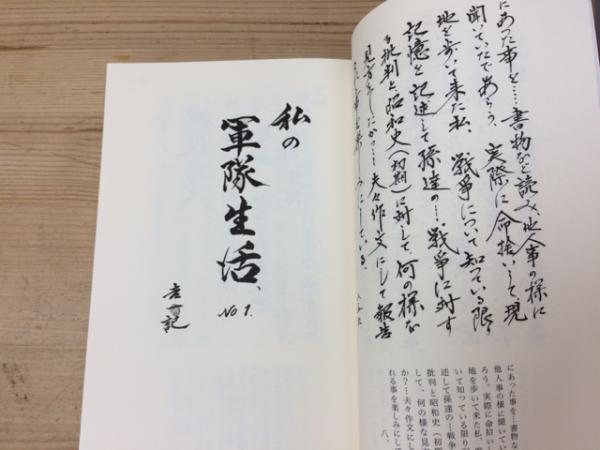 にあった事を…書物など読み、他人事の様に
聞いていたであらう、実際に命捨いして現
地を歩いて来た私、戦争について知っている限り
記憶と記述して孫達の…戦争に対す
る批判と、昭和史(初期)に対して何の様な
見方をしたか…夫々作文にして報告
にしている。
にあった事を…書物な
他人事の様に聞いてい
ろう。実際に命拾い
地を歩いて来た私、戦
いて知っている限り
述して孫達の…戦争
批判と昭和史(初期
して、何の様な見方
か?…夫々作文にし
れる事を楽しみにし
八、
私の
軍隊生活、
No 1.
記